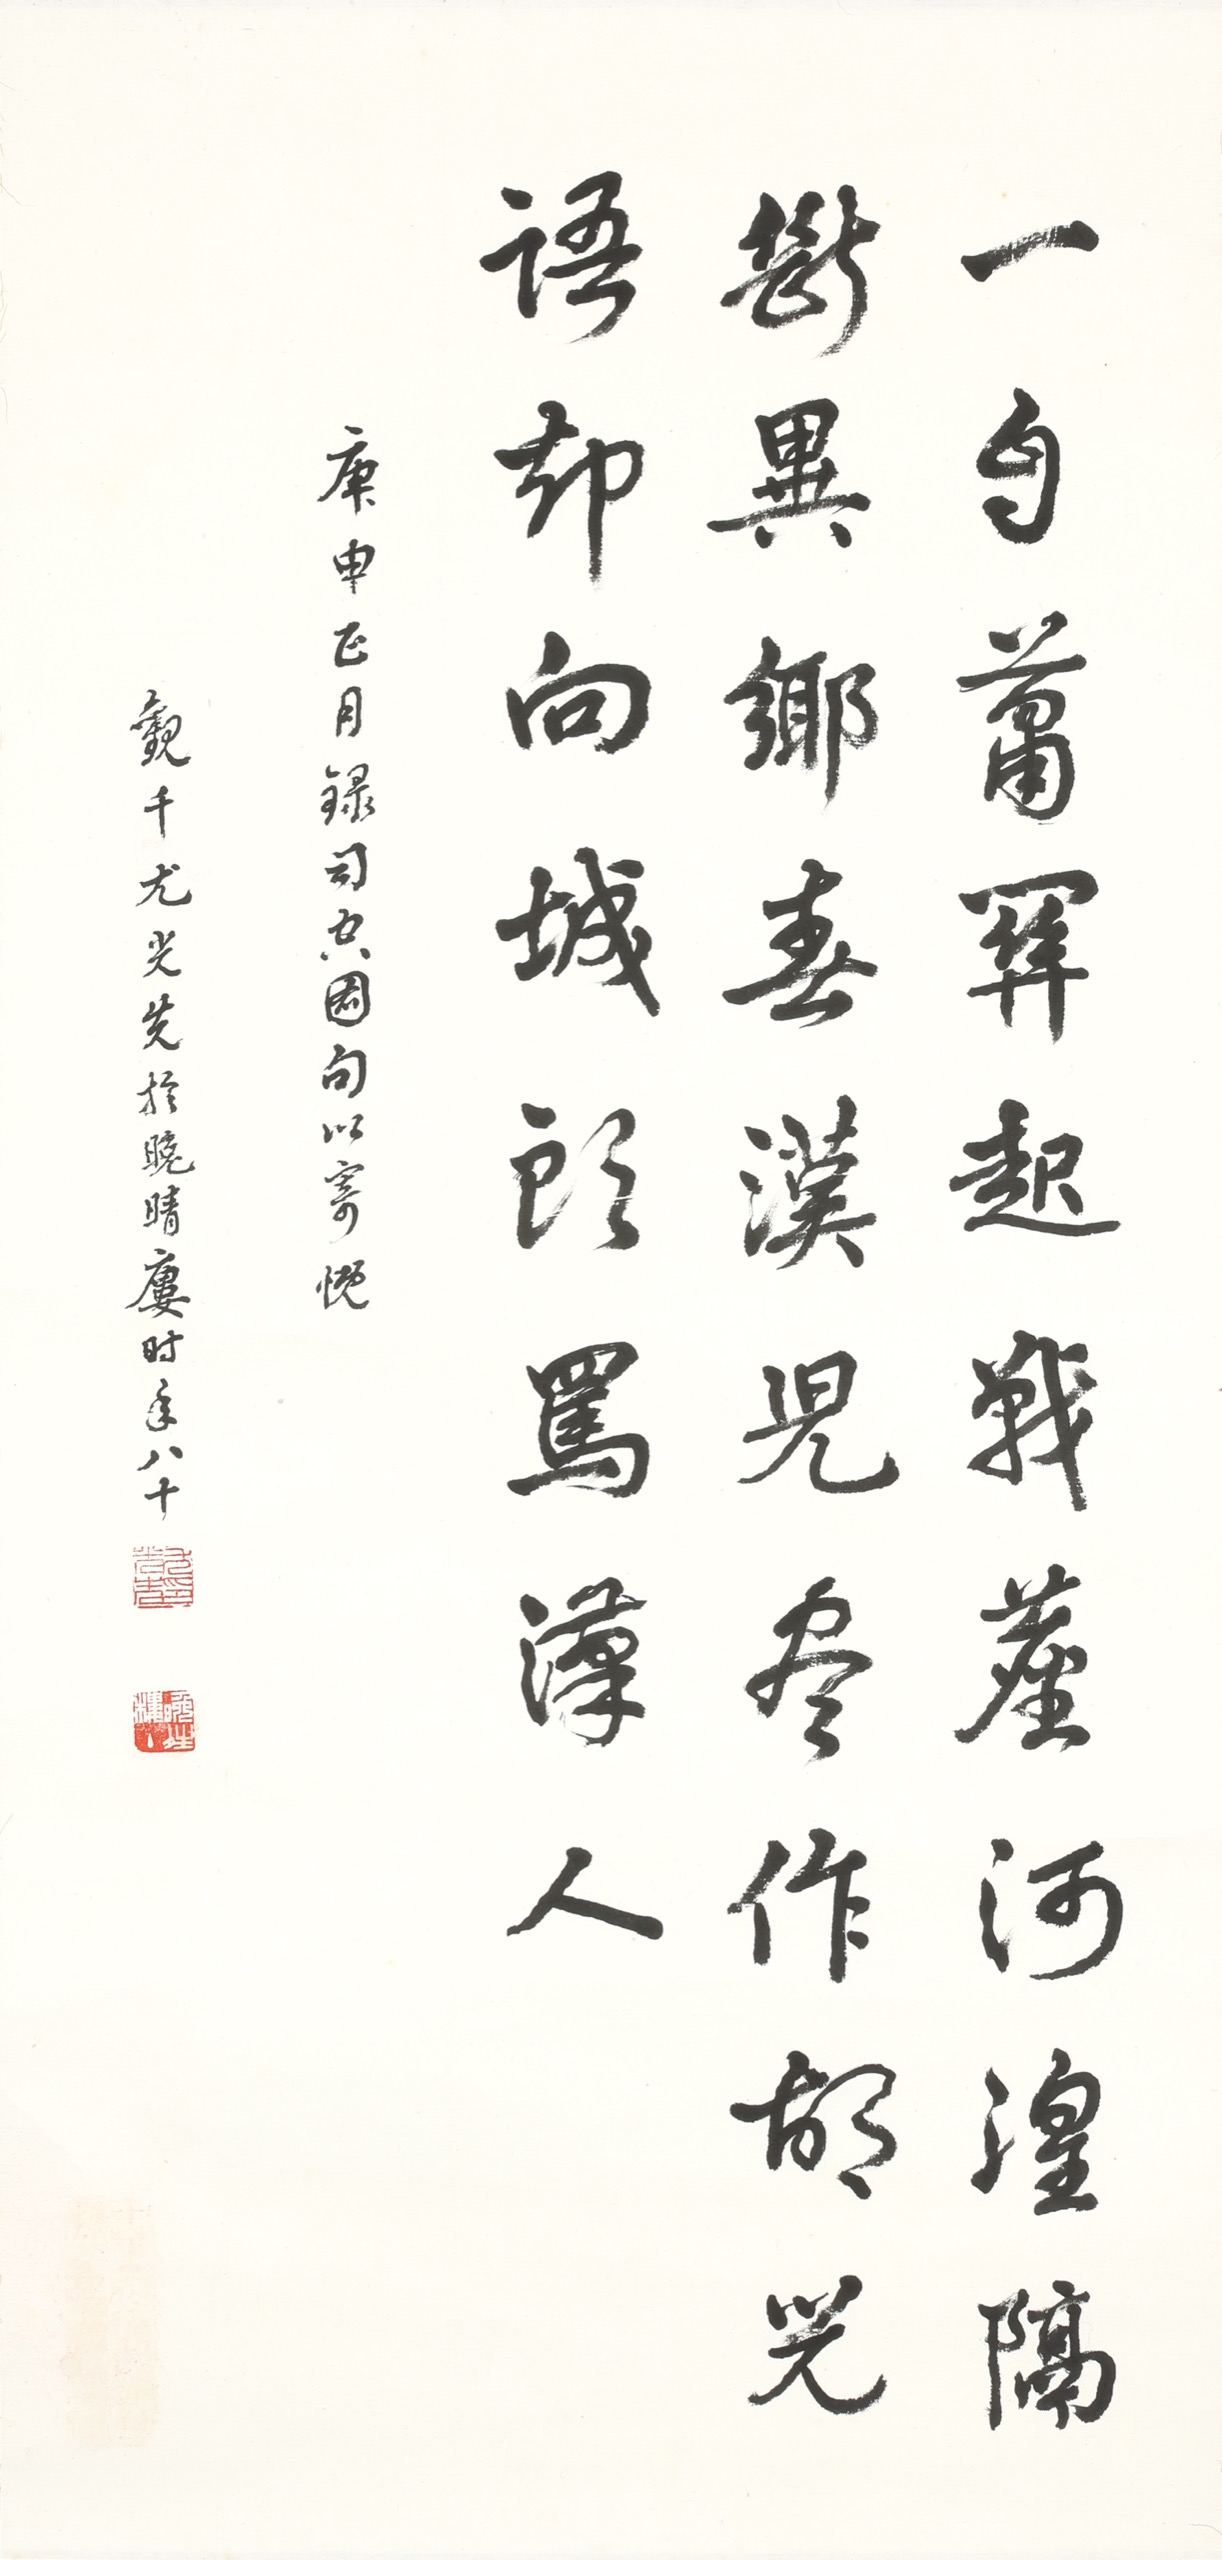 一自蕭關起戰塵河湟隔
斷異鄉春漢兒盡作胡兒
語却向城頭罵漢人
庚申正月錄司空圖句以寄慨
觀千尤光先於晚晴廔時年八十